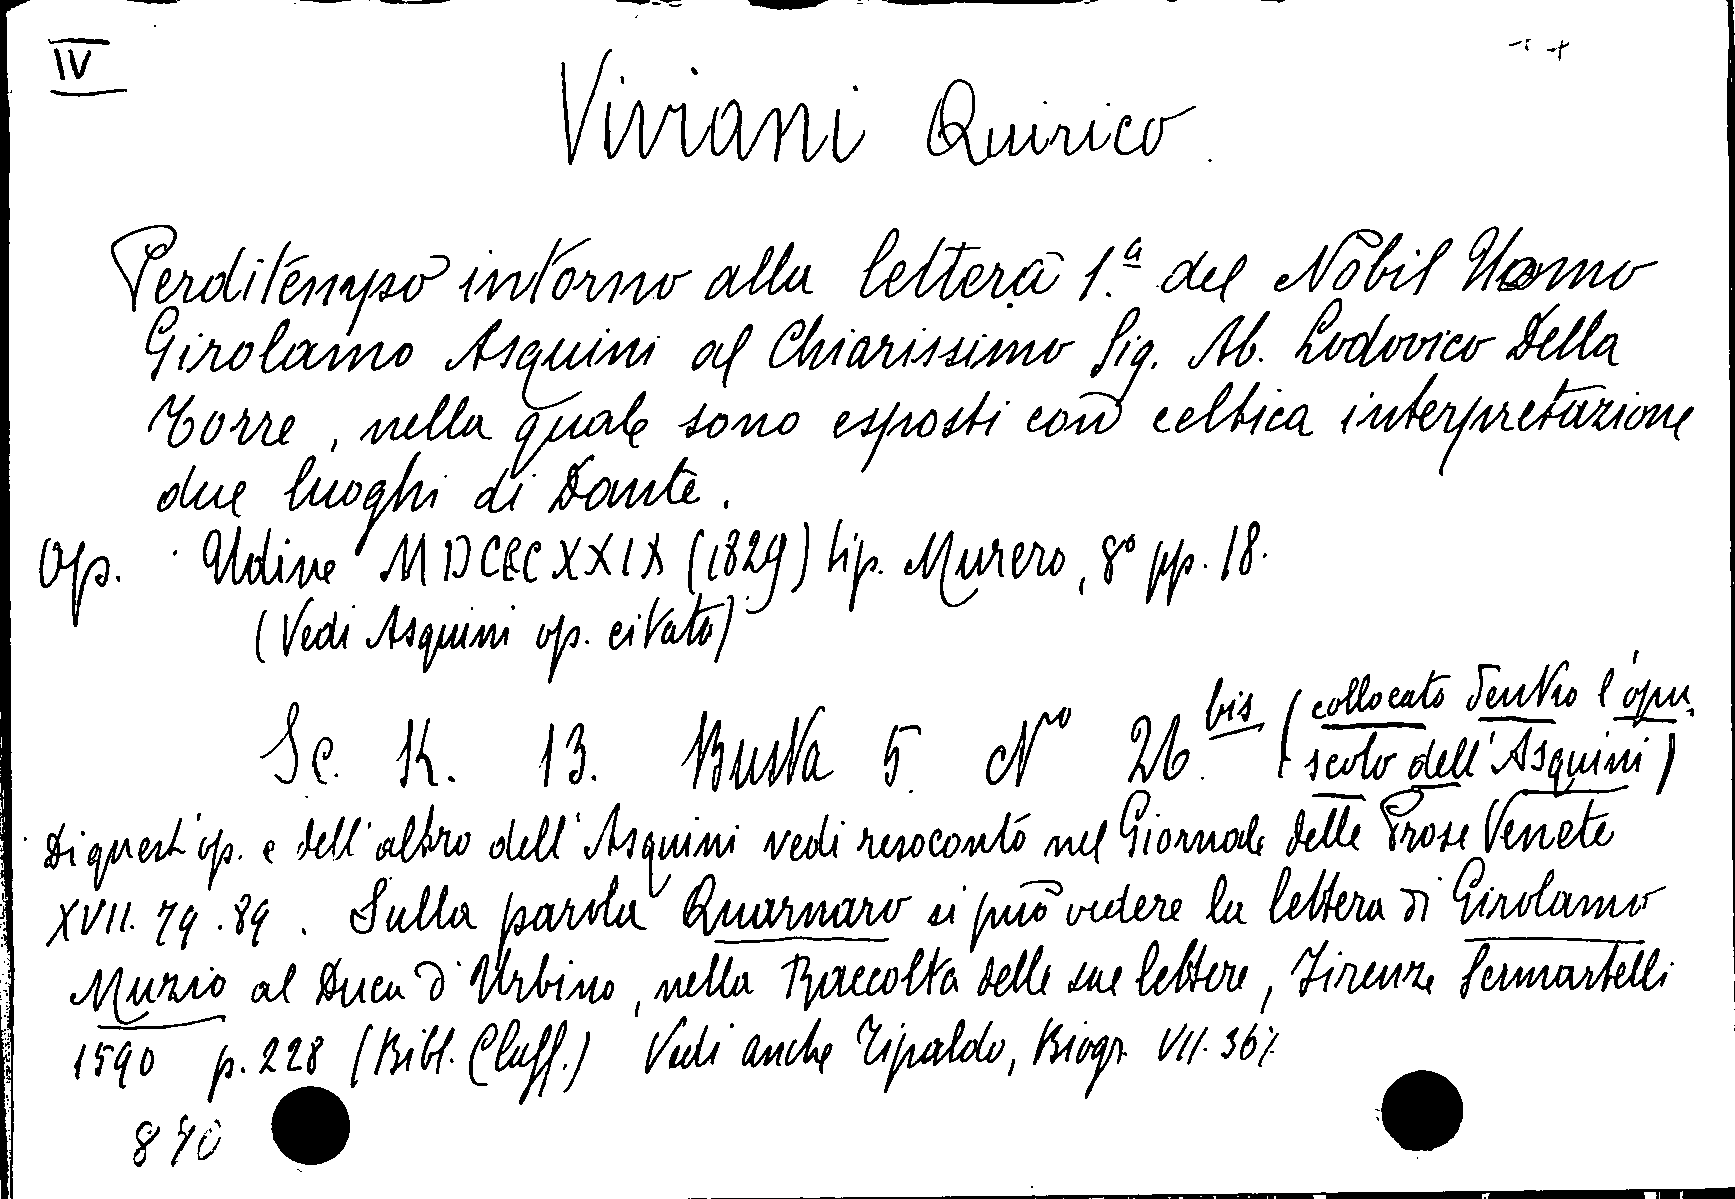 IV
Viviani Quirico.
Perditempo intorno alla lettera 1.ª del Nobil Uomo
Girolamo Asquini al Chiarissimo Sig. Ab. Lodovico Della
Torre, nella quale sono esposti con celtica interpretazione
due luoghi di Dante.
Op. Udine MDCCCXXIX (1829) tip. Murero, 8° pp. 18.
(Vedi Asquini op. citato)
Sc. K. 13. Busta 5 N° 26 bis (collocato dentro l'opu-
scolo dell'Asquini)
Di quest'op. e dell'altro dell'Asquini vedi resoconto nel Giornale delle Prose Venete
XVII. 79.89. Sulla parola Quarnaro si può vedere la lettera di Girolamo
Muzio al Duca d'Urbino, nella Raccolta delle sue lettere, Firenze Sermartelli
1590 p. 228 (Bibl. Ciuff.) Vedi anche Tipaldo, Biogr. VII. 367.
870